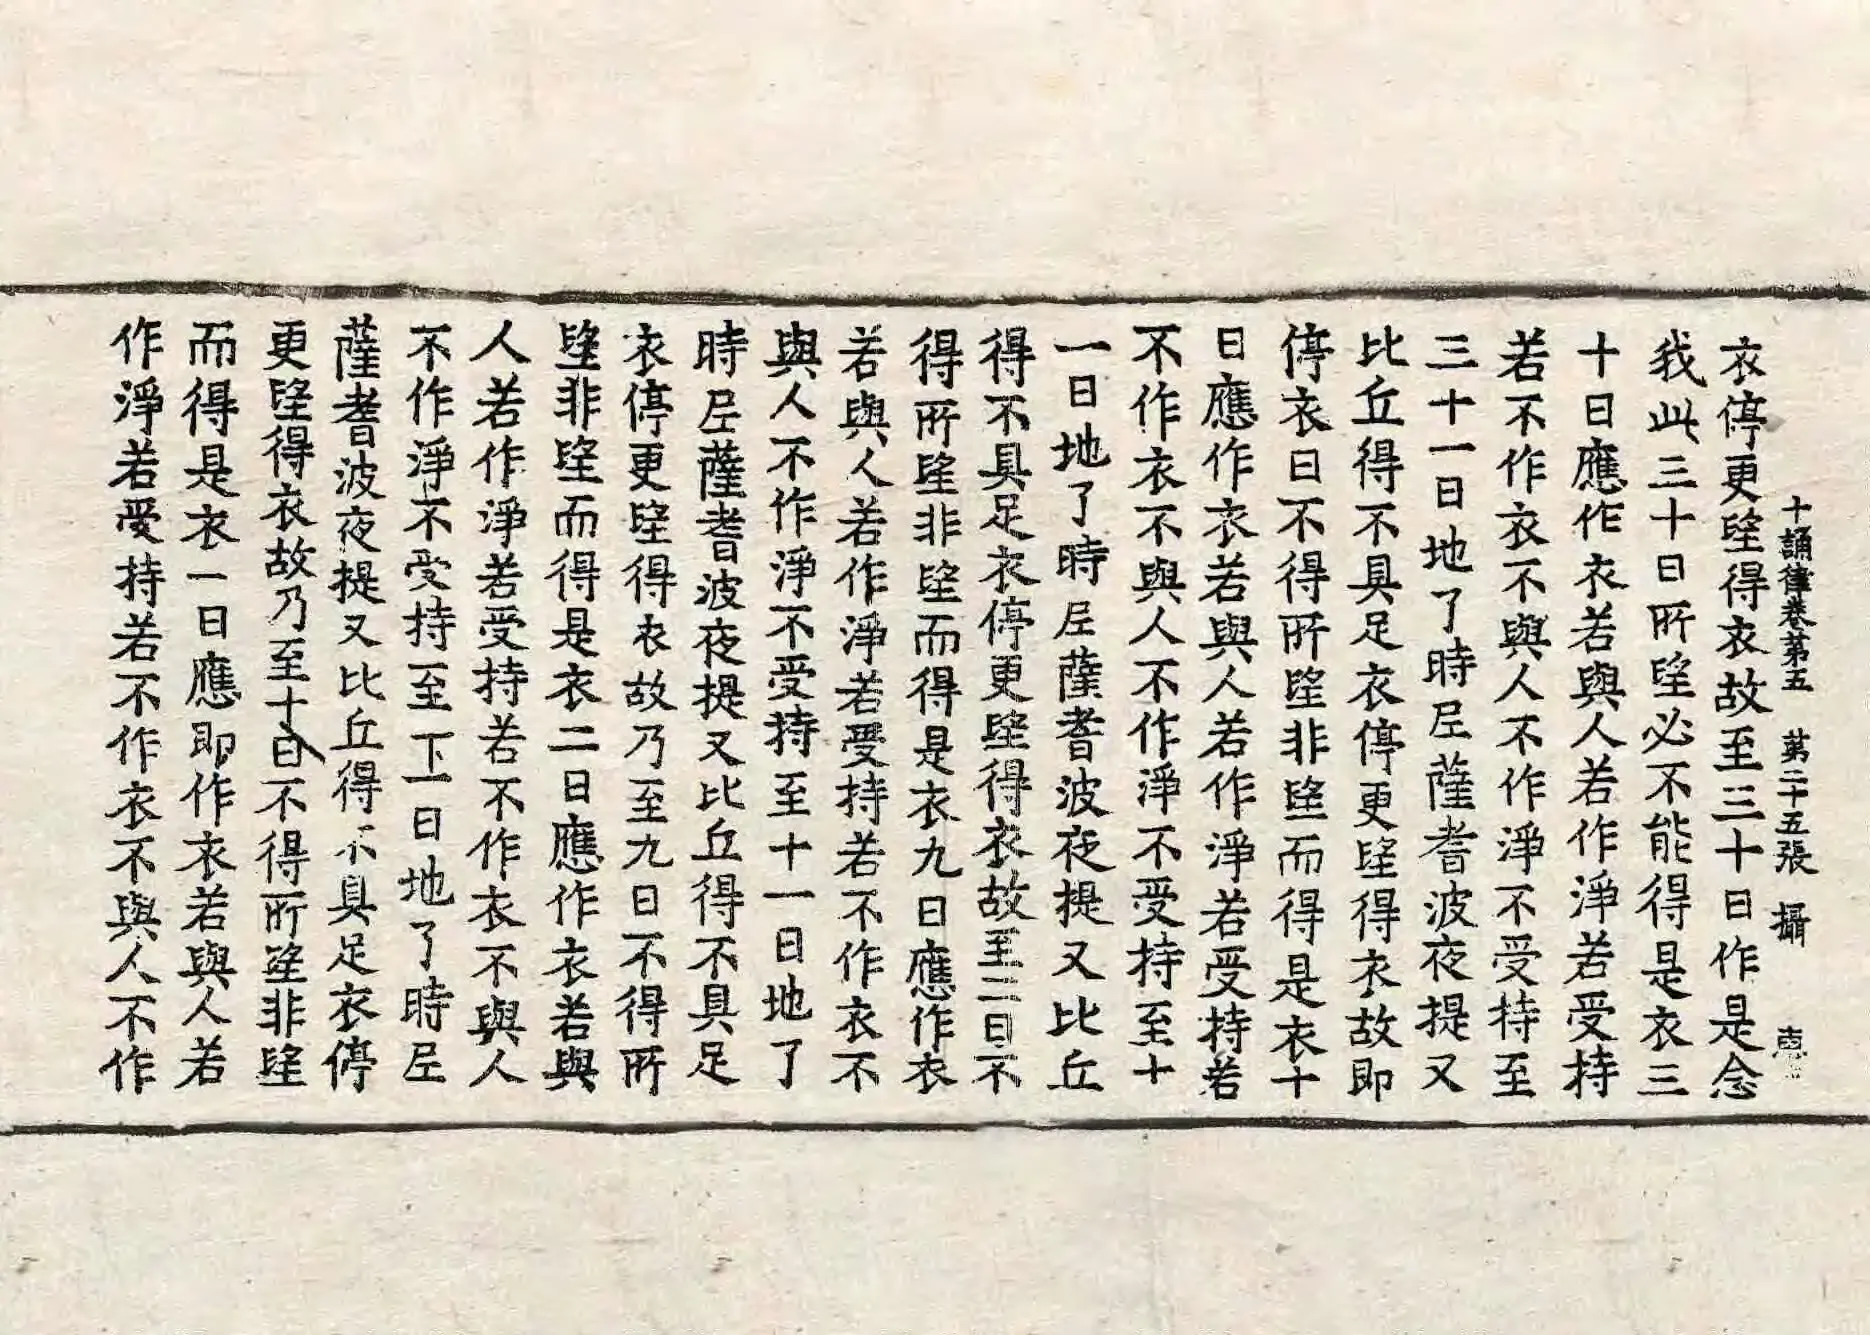 十誦律卷第五 第二十五張 攝 惠
衣停更望得衣故至三十日作是念
我此三十日所望必不能得是衣三
十日應作衣若與人若作淨若受持
若不作衣不與人不作淨不受持至
三十一日地了時尼薩耆波夜提又
比丘得不具足衣停更望得衣故即
停衣日不得所望非望而得是衣十
日應作衣若與人若作淨若受持若
不作衣不與人不作淨不受持至十
一日地了時尼薩耆波夜提又比丘
得不具足衣停更望得衣故至二日不
得所望非望而得是衣九日應作衣
若與人若作淨若受持若不作衣不
與人不作淨不受持至十一日地了
時尼薩耆波夜提又比丘得不具足
衣停更望得衣故乃至九日不得所
望非望而得是衣二日應作衣若與
人若作淨若受持若不作衣不與人
不作淨不受持至十一日地了時尼
薩耆波夜提又比丘得不具足衣停
更望得衣故乃至十日不得所望非望
而得是衣一日應即作衣若與人若
作淨若受持若不作衣不與人不作